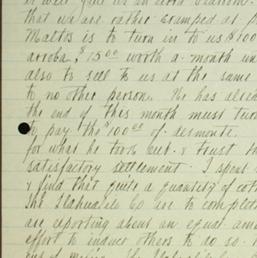 that we are rather swamped at p
Maltos is to turn in to us $100
arroba, $15.00 worth a month un
also to sell to us at the same
to no other person. He has alrea
the end of this month must tur
to pay the $100.00 of desmonte.
for what he took out. & trust th
satisfactory settlement. I spent
& find that quite a quantity of cot
The Llahuale Co are to complet
are exporting about an equal amo
effort to induce others to do so.